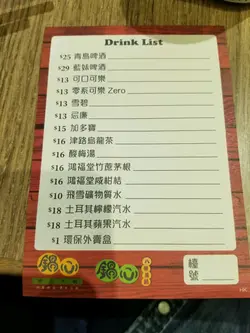 Drink List
$25 青島啤酒
$29 藍妹啤酒
$13 可口可樂
$13 零系可樂 Zero
$13 雪碧
$13 忌廉
$15 加多寶
$16 津路烏龍茶
$16 酸梅湯
$16 鴻福堂竹蔗茅根
$16 鴻福堂咸柑桔
$10 飛雪礦物質水
$18 土耳其檸檬汽水
$18 土耳其蘋果汽水
$1 環保外賣盒
鍋心
鍋心
檯號